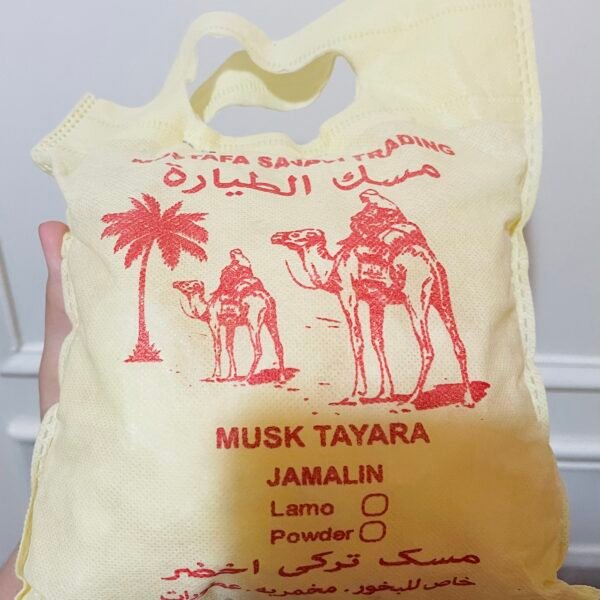 MUSTAFA SAJADI TRADING
مسك الطيارة
MUSK TAYARA
JAMALIN
Lamo
Powder
مسك تركي اخضر
خاص للبخور. مخمريه.